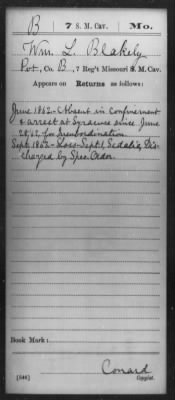 B 7 S. M. Cav. Mo.
Wm. L. Blakely
Pvt., Co. B, 7 Reg't Missouri S. M. Cav.
Appears on Returns as follows:
June 1862-Absent in confinement
& arrest at Syracuse since June
28, 62, for Insubordination.
Sept. 1862- Loss-Sept. 1, Sedalia, Dis-
charged by Spec. Order.
Book Mark:
Conard
(546) Copyist.